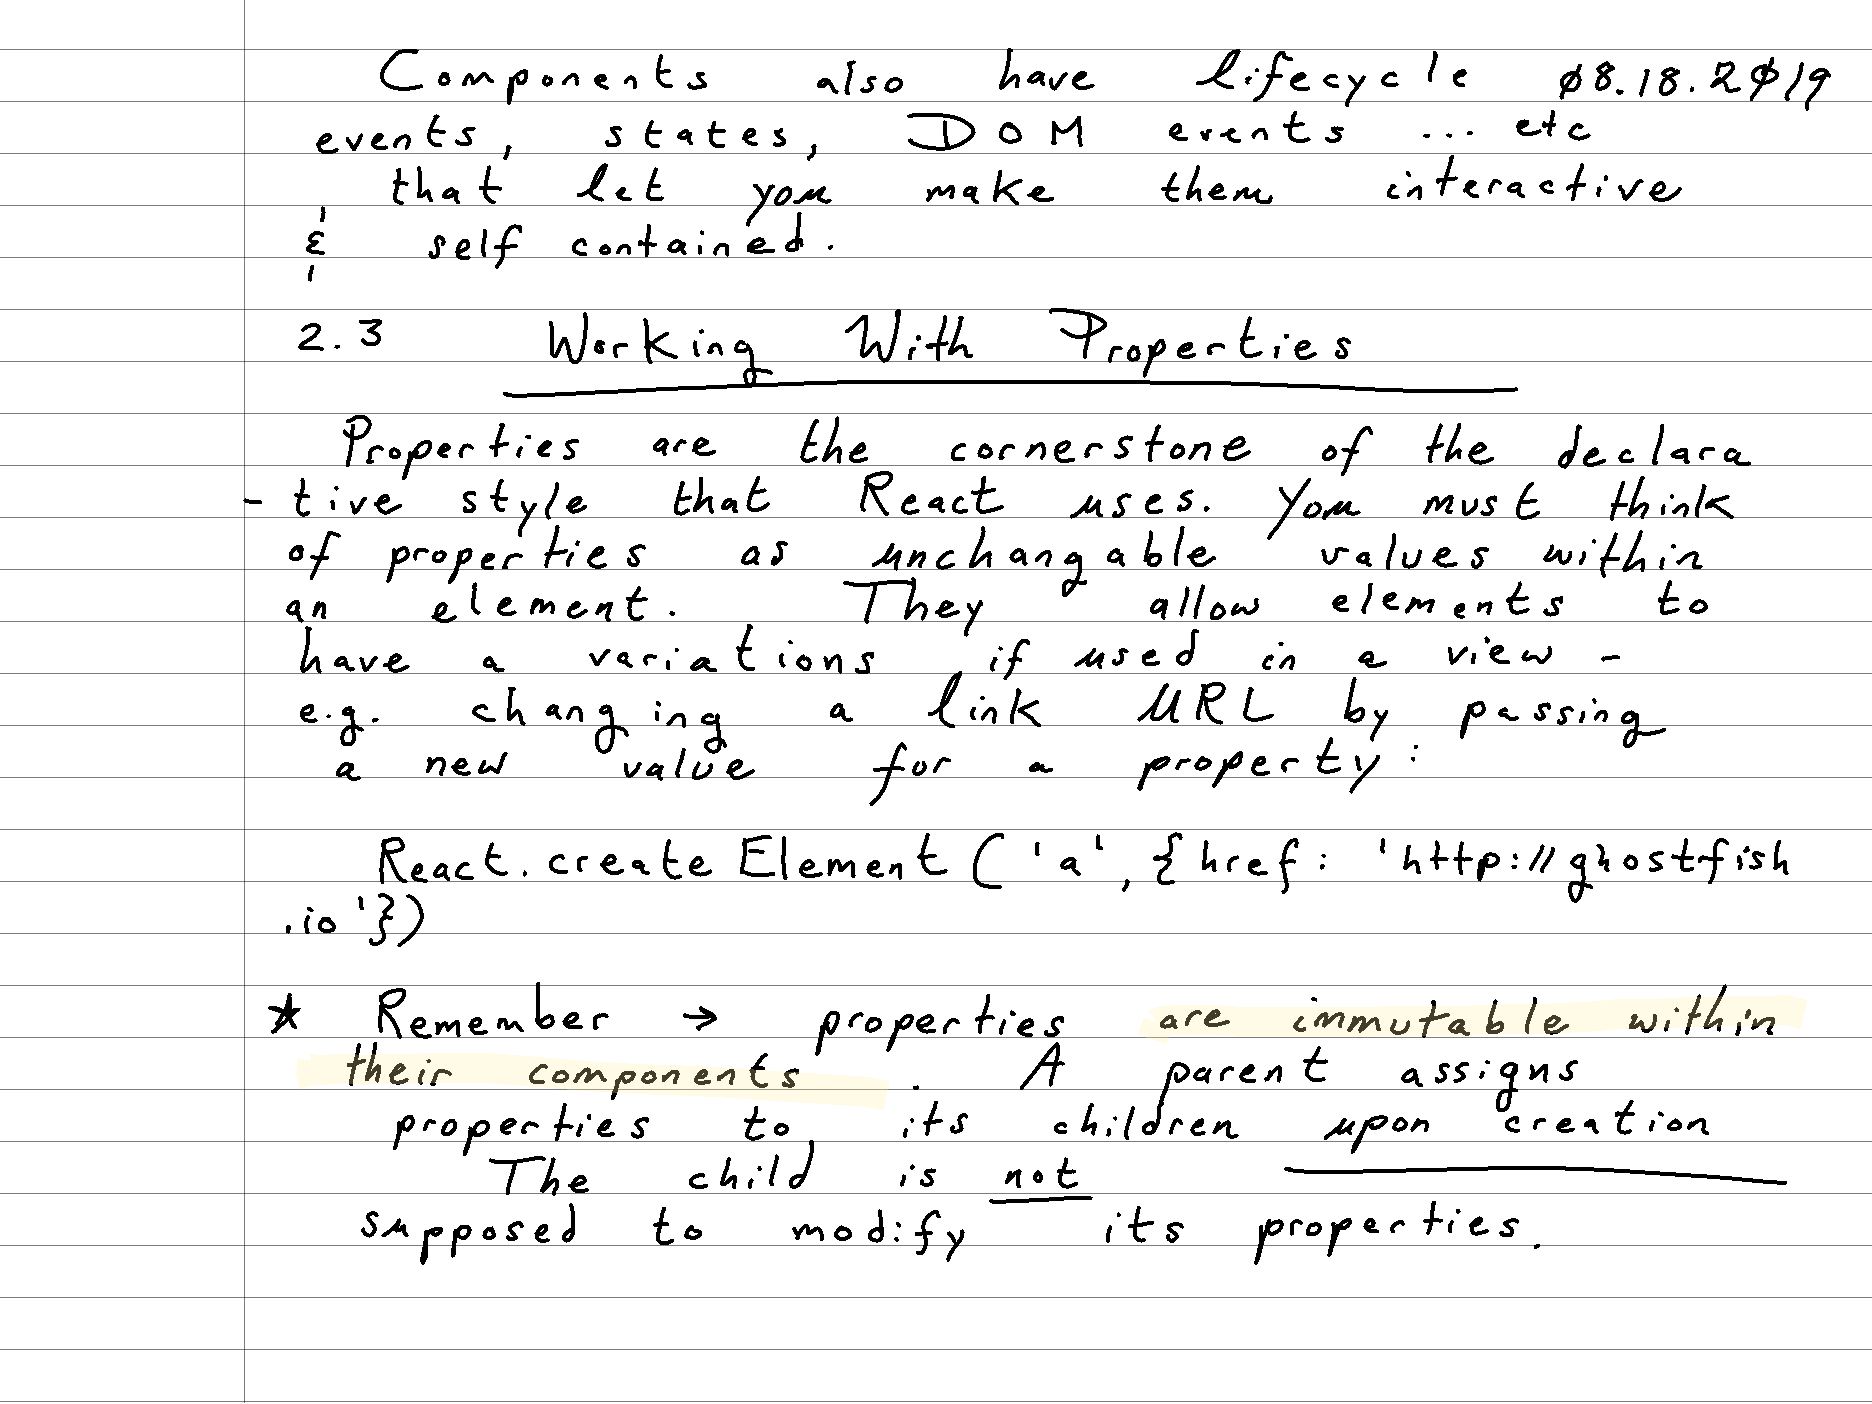 Components also have lifecycle 08.18.2019
events, states, DOM events ... etc
that let you make them interactive
& self contained.
2.3 Working With Properties
Properties are the cornerstone of the declara
- tive style that React uses. You must think
of properties as unchangable values within
an element. They allow elements to
have a variations if used in a view -
e.g. changing a link URL by passing
a new value for a property:
React.createElement('a', {href: 'http://ghostfish
.io'})
★ Remember → properties are immutable within
their components. A parent assigns
properties to its children upon creation
The child is not
supposed to modify its properties.